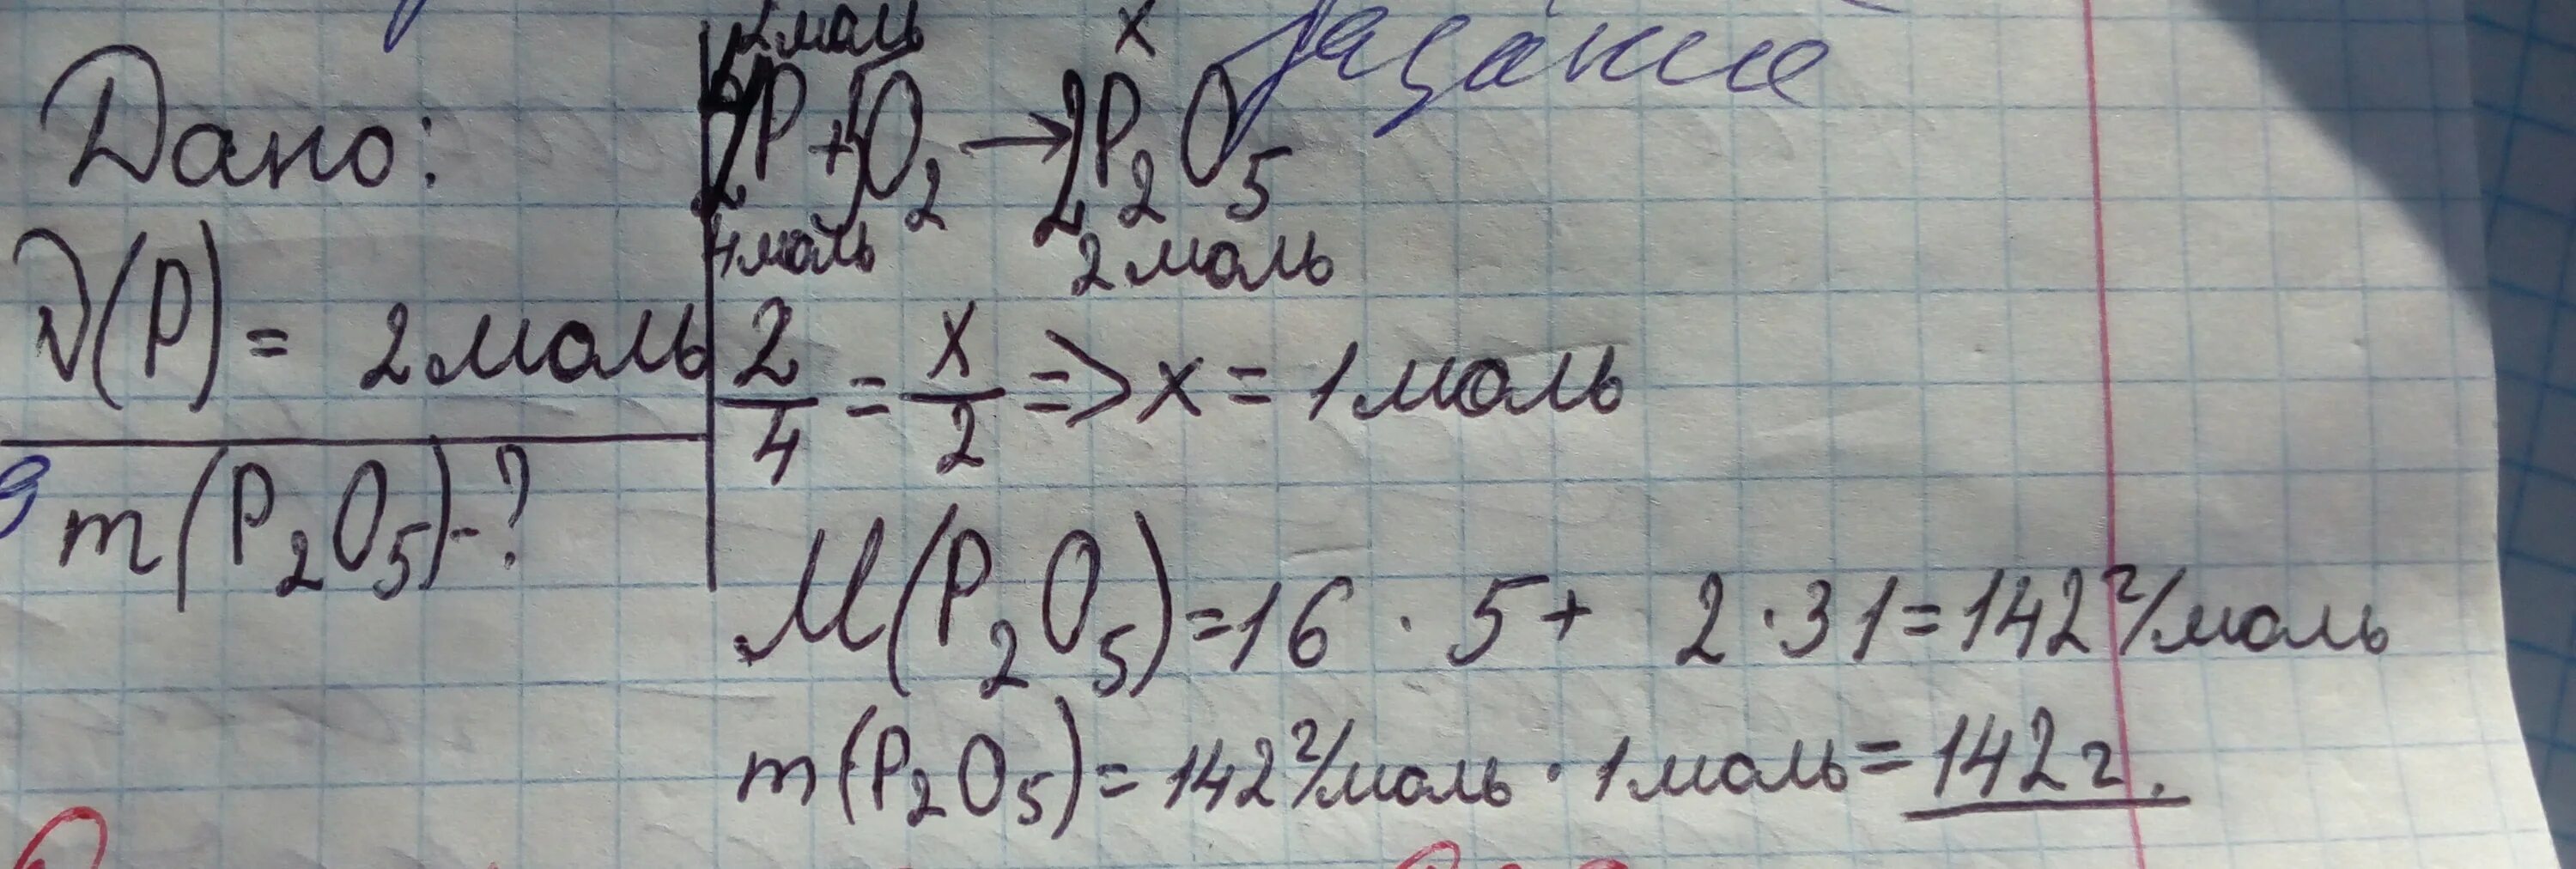 задание
Дано:
ν(P) = 2 моль
m(P₂O₅) - ?
2 моль x
4P + 5O₂ → 2P₂O₅
4 моль 2 моль
2/4 = x/2 => x = 1 моль
M(P₂O₅) = 16 · 5 + 2 · 31 = 142 г/моль
m(P₂O₅) = 142 г/моль · 1 моль = 142 г.